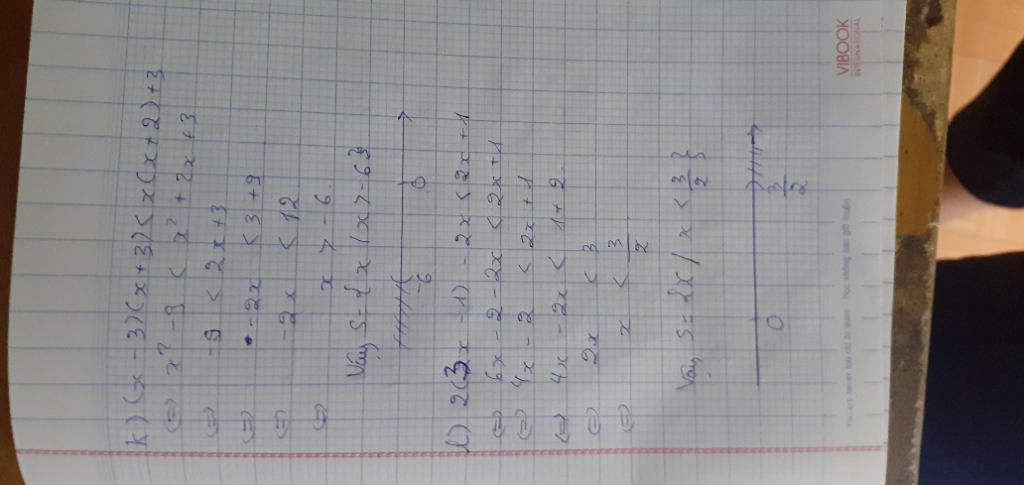 k) (x - 3)(x + 3) < x(x + 2) + 3
⇔ x² - 9 < x² + 2x + 3
⇔ -9 < 2x + 3
⇔ -2x < 3 + 9
⇔ -2x < 12
⇔ x > -6
Vậy S = {x / x > -6}
-6 0
l) 2(3x - 1) - 2x < 2x + 1
⇔ 6x - 2 - 2x < 2x + 1
⇔ 4x - 2 < 2x + 1
⇔ 4x - 2x < 1 + 2
⇔ 2x < 3
⇔ x < 3/2
Vậy S = {x / x < 3/2}
0 3/2
You are never too old to learn
VIBOOK
INTERNATIONAL